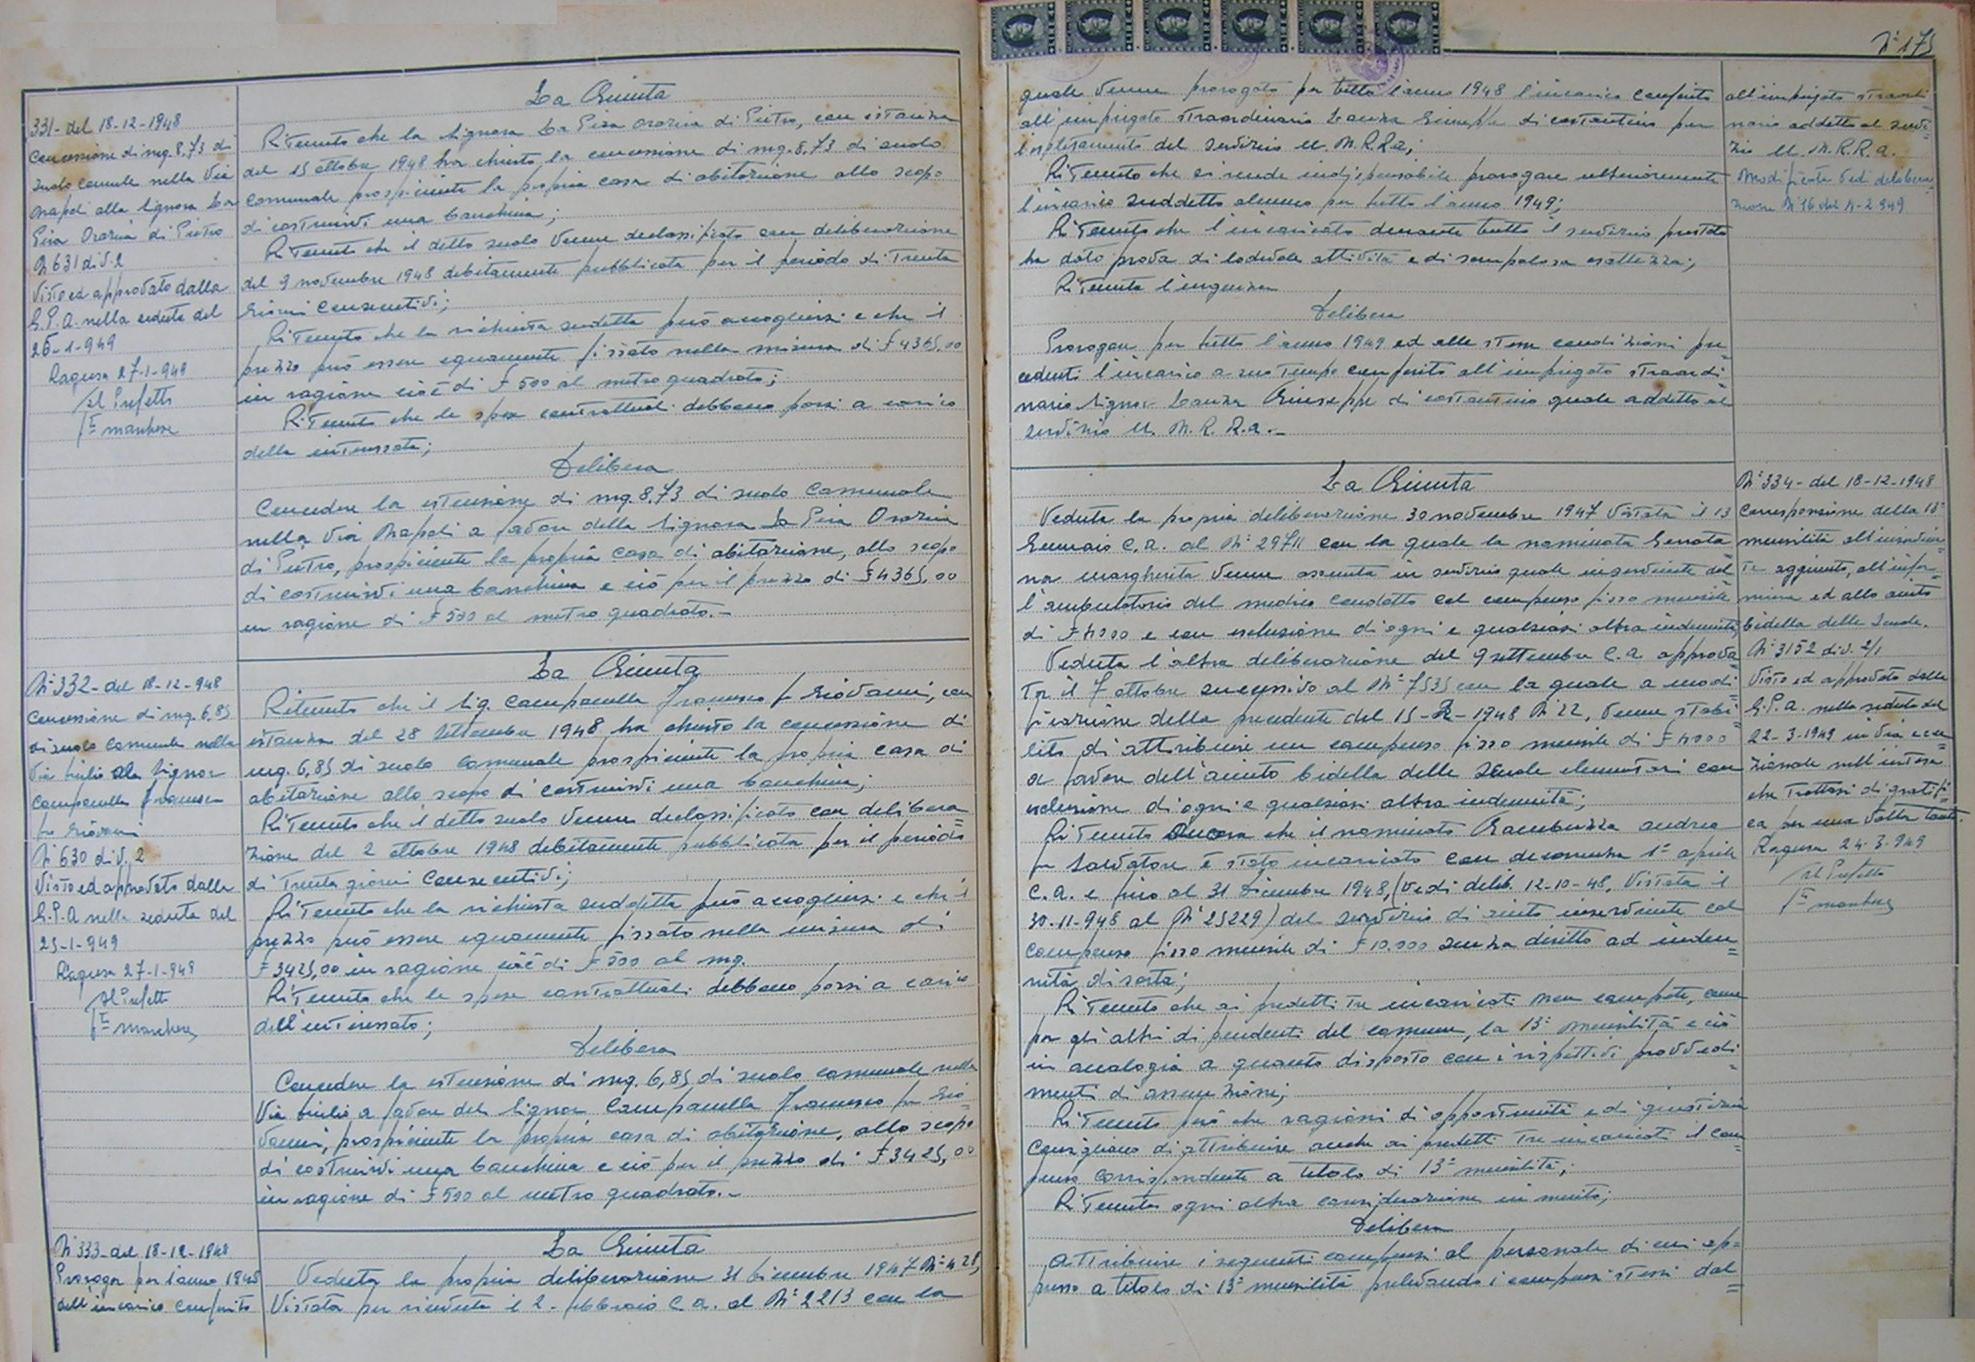 331- del 18-12-1948
Concessione di mq. 8,73 di
suolo comunale nella Via
Napoli alla Signora La
Pira Orazia di Pietro
N 631 di v. 2
Visto ed approvato dalla
G.P.A. nella seduta del
25-1-949
Ragusa 27-1-949
Il Prefetto
La Giunta
Ritenuto che la Signora La Pira Orazia di Pietro, con istanza
del 15 ottobre 1948 ha chiesto la concessione di mq. 8,73 di suolo
comunale prospiciente la propria casa di abitazione allo scopo
di costruirvi una banchina;
Ritenuto che il detto suolo venne declassificato con deliberazione
del 9 novembre 1948 debitamente pubblicata per il periodo di trenta
giorni consecutivi;
Ritenuto che la richiesta sudetta può accogliersi e che il
prezzo può essere equamente fissato nella misura di £ 4365,00
in ragione cioè di £ 500 al metro quadrato;
Ritenuto che le spese contrattuali debbano porsi a carico
della interessata;
Delibera
Concedere la estensione di mq. 8,73 di suolo comunale
nella Via Napoli a favore della Signora La Pira Orazia
di Pietro, prospiciente la propria casa di abitazione, allo scopo
di costruirvi una banchina e ciò per il prezzo di £ 4365,00
in ragione di £ 500 al metro quadrato.-
N° 332- del 18-12-948
Concessione di mq. 6,85
di suolo comunale nella
Via alla Signor
Campanella Francesco
fu Giovanni
N° 630 di v. 2
Visto ed approvato dalla
G.P.A nella seduta del
25-1-949
Ragusa 27-1-949
Il Prefetto
La Giunta
Ritenuto che il Sig. Campanella Francesco fu Giovanni, con
istanza del 28 settembre 1948 ha chiesto la concessione di
mq. 6,85 di suolo comunale prospiciente la propria casa di
abitazione allo scopo di costruirvi una banchina;
Ritenuto che il detto suolo venne declassificato con delibera=
zione del 2 ottobre 1948 debitamente pubblicata per il periodo
di trenta giorni consecutivi;
Ritenuto che la richiesta suddetta può accogliersi e che il
prezzo può essere equamente fissato nella misura di
£ 3425,00 in ragione cioè di £ 500 al mq.
Ritenuto che le spese contrattuali debbano porsi a carico
dell'interessato;
Delibera
Concedere la estensione di mq. 6,85 di suolo comunale nella
Via a favore del Signor Campanella Francesco fu Gio=
vanni, prospiciente la propria casa di abitazione, allo scopo
di costruirvi una banchina e ciò per il prezzo di £ 3425,00
in ragione di £ 500 al metro quadrato.-
N° 333- del 18-12-1948
Proroga per l'anno 1948
dell'incarico conferito
La Giunta
Veduta la propria deliberazione 31 Dicembre 1947 N° 428,
Vistata per ricevuta il 2- febbraio c.a. al N° 2213 con la
N° 175
quale venne prorogato per tutto l'anno 1948 l'incarico conferito
all'impiegato straordinario Lanza Giuseppe di Costantino per
l'espletamento del servizio U.N.R.R.A;
Ritenuto che si rende indispensabile prorogare ulteriormente
l'incarico suddetto almeno per tutto l'anno 1949;
Ritenuto che l'incaricato durante tutto il servizio prestato
ha dato prova di lodevole attività e di scrupolosa esattezza;
Ritenuta l'urgenza
Delibera
Prorogare per tutto l'anno 1949 ed alle stesse condizioni pre=
cedenti l'incarico a suo tempo conferito all'impiegato straordi=
nario Signor Lanza Giuseppe di Costantino quale addetto al
servizio U.N.R.R.A.-
all'impiegato straordi
nario addetto al servi=
zio U.N.R.R.A.
Modificata Vedi delibera
zione N° 16 del 11-2-949
La Giunta
Veduta la propria deliberazione 30 novembre 1947 vistata il 13
Gennaio c.a. al N° 29711 con la quale la nominata
na Margherita venne assunta in servizio quale inserviente del=
l'ambulatorio del medico condotto col compenso fisso mensile
di £ 4000 e con esclusione di ogni e qualsiasi altra indennità;
Veduta l'altra deliberazione del 9 settembre c.a. approva=
ta il 7 ottobre successivo al N° 7535 con la quale a modi=
ficazione della precedente del 15-2-1948 N° 22, venne stabi=
lito di attribuire un compenso fisso mensile di £ 4000
a favore dell'aiuto bidella delle scuole elementari con
esclusione di ogni e qualsiasi altra indennità;
Ritenuto ancora che il nominato Gambuzza Andrea
fu Salvatore è stato incaricato con decorrenza 1° aprile
c.a. e fino al 31 Dicembre 1948, (Vedi delib. 12-10-48, Vistata il
30-11-948 al N° 25229) del servizio di aiuto inserviente col
compenso fisso mensile di £ 10,000 senza diritto ad inden=
nità di sorta;
Ritenuto che ai predetti tre incaricati non compete, come
per gli altri dipendenti del comune, la 13° mensilità e ciò
in analogia a quanto disposto con i rispettivi provvedi=
menti di assunzione;
Ritenuto però che ragioni di opportunità e di giustizia
consigliano di attribuire anche ai predetti tre incaricati il com=
penso corrispondente a titolo di 13° mensilità;
Ritenuta ogni altra considerazione in merito;
Delibera
Attribuire i seguenti compensi al personale di cui ap=
presso a titolo di 13° mensilità prelevando i compensi stessi dal=
N° 334- del 18-12-1948
Corresponsione della 13°
mensilità all'inservien=
te aggiunto,
ed allo aiuto
bidella delle Scuole.
N° 3152 div. 2/1
Visto ed approvato dalla
G.P.A. nella seduta del
22-3-1949 in via ecce=
zionale nell'intesa
che trattasi di gratifi=
ca per una volta tanto.
Ragusa 24-3-949
Il Prefetto